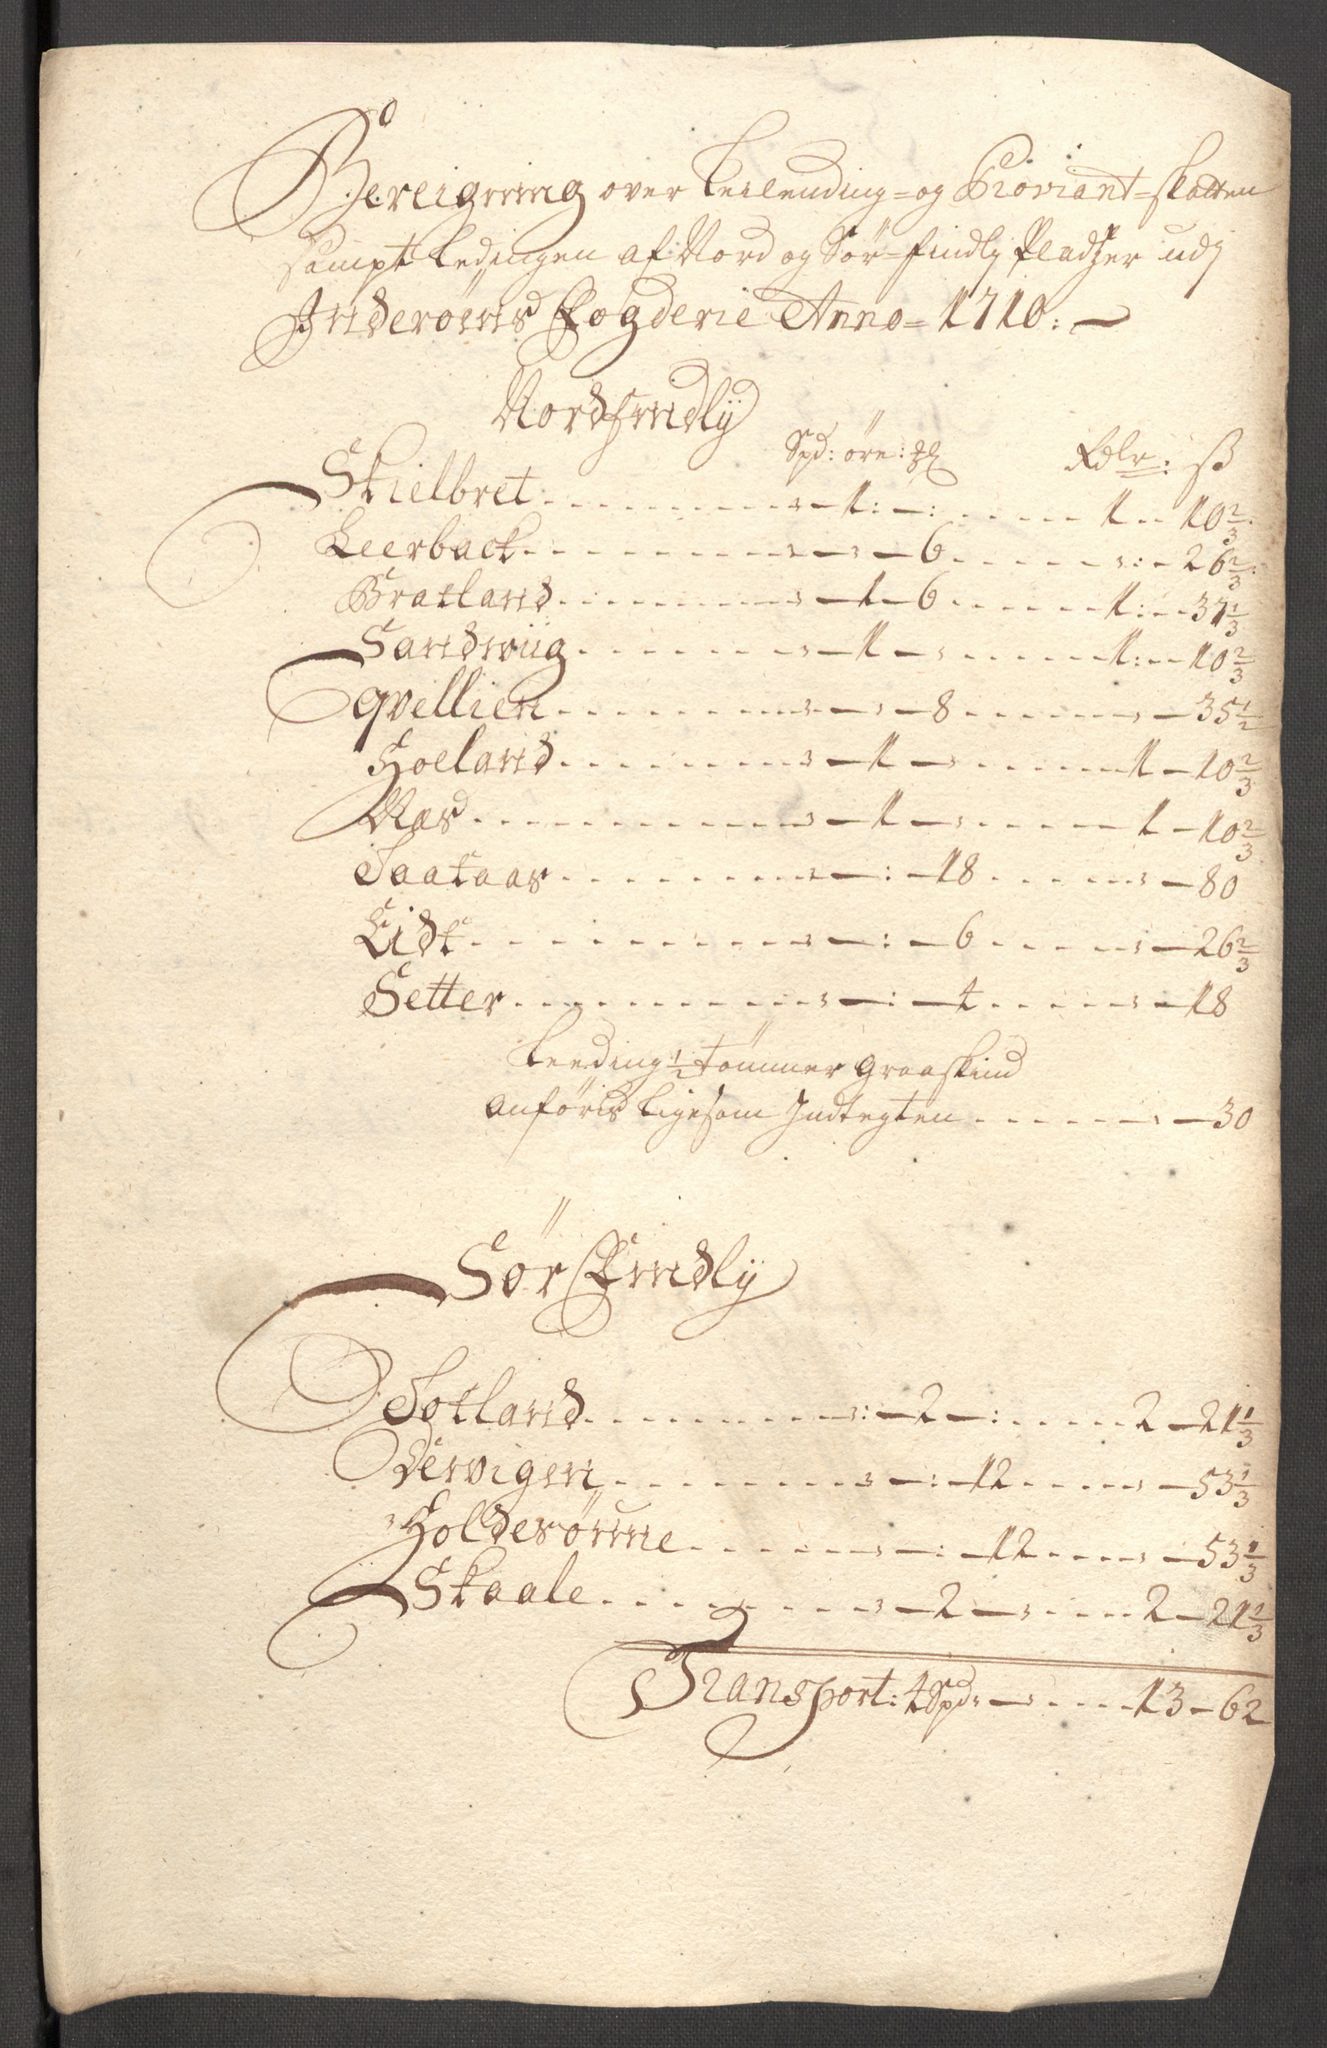 Bereigning over Leilending- og Proviant-skatten
sampt Ledingen af Nord og Sør-findly Pladzer udj
Inderøens Fogderie Anno = 1710: —
Nordfindlij
Spd: øre: Rdlr: ß
Skielbret — 1: — : 1 10 2/3
Leerback — 6 : 26 2/3
Bratland — 1 — 6 1: 37 1/3
Sandwiig — 1 — 1: 10 2/3
Qvellien — 8 — 35 1/2
Hoeland — 1 — 1 — 10 2/3
Næs — 1 — 1 — 10 2/3
Saataas — : — 18 — 80
Lidt — : — 6 — 26 2/3
Setter — : — 4 — 18
Leeding 1/2 tømmer graaskind
anføris ligesom Indtegten — 30
Sør Findlij
Totland : — 2 — : 2 — 21 1/3
Dervigen — : — 12 — 53 1/3
Holdesøinne — : — 12 — 53 1/3
Skaale — 2 — 2 — 21 2/3
Transport: 4 Spd: — 13 — 62